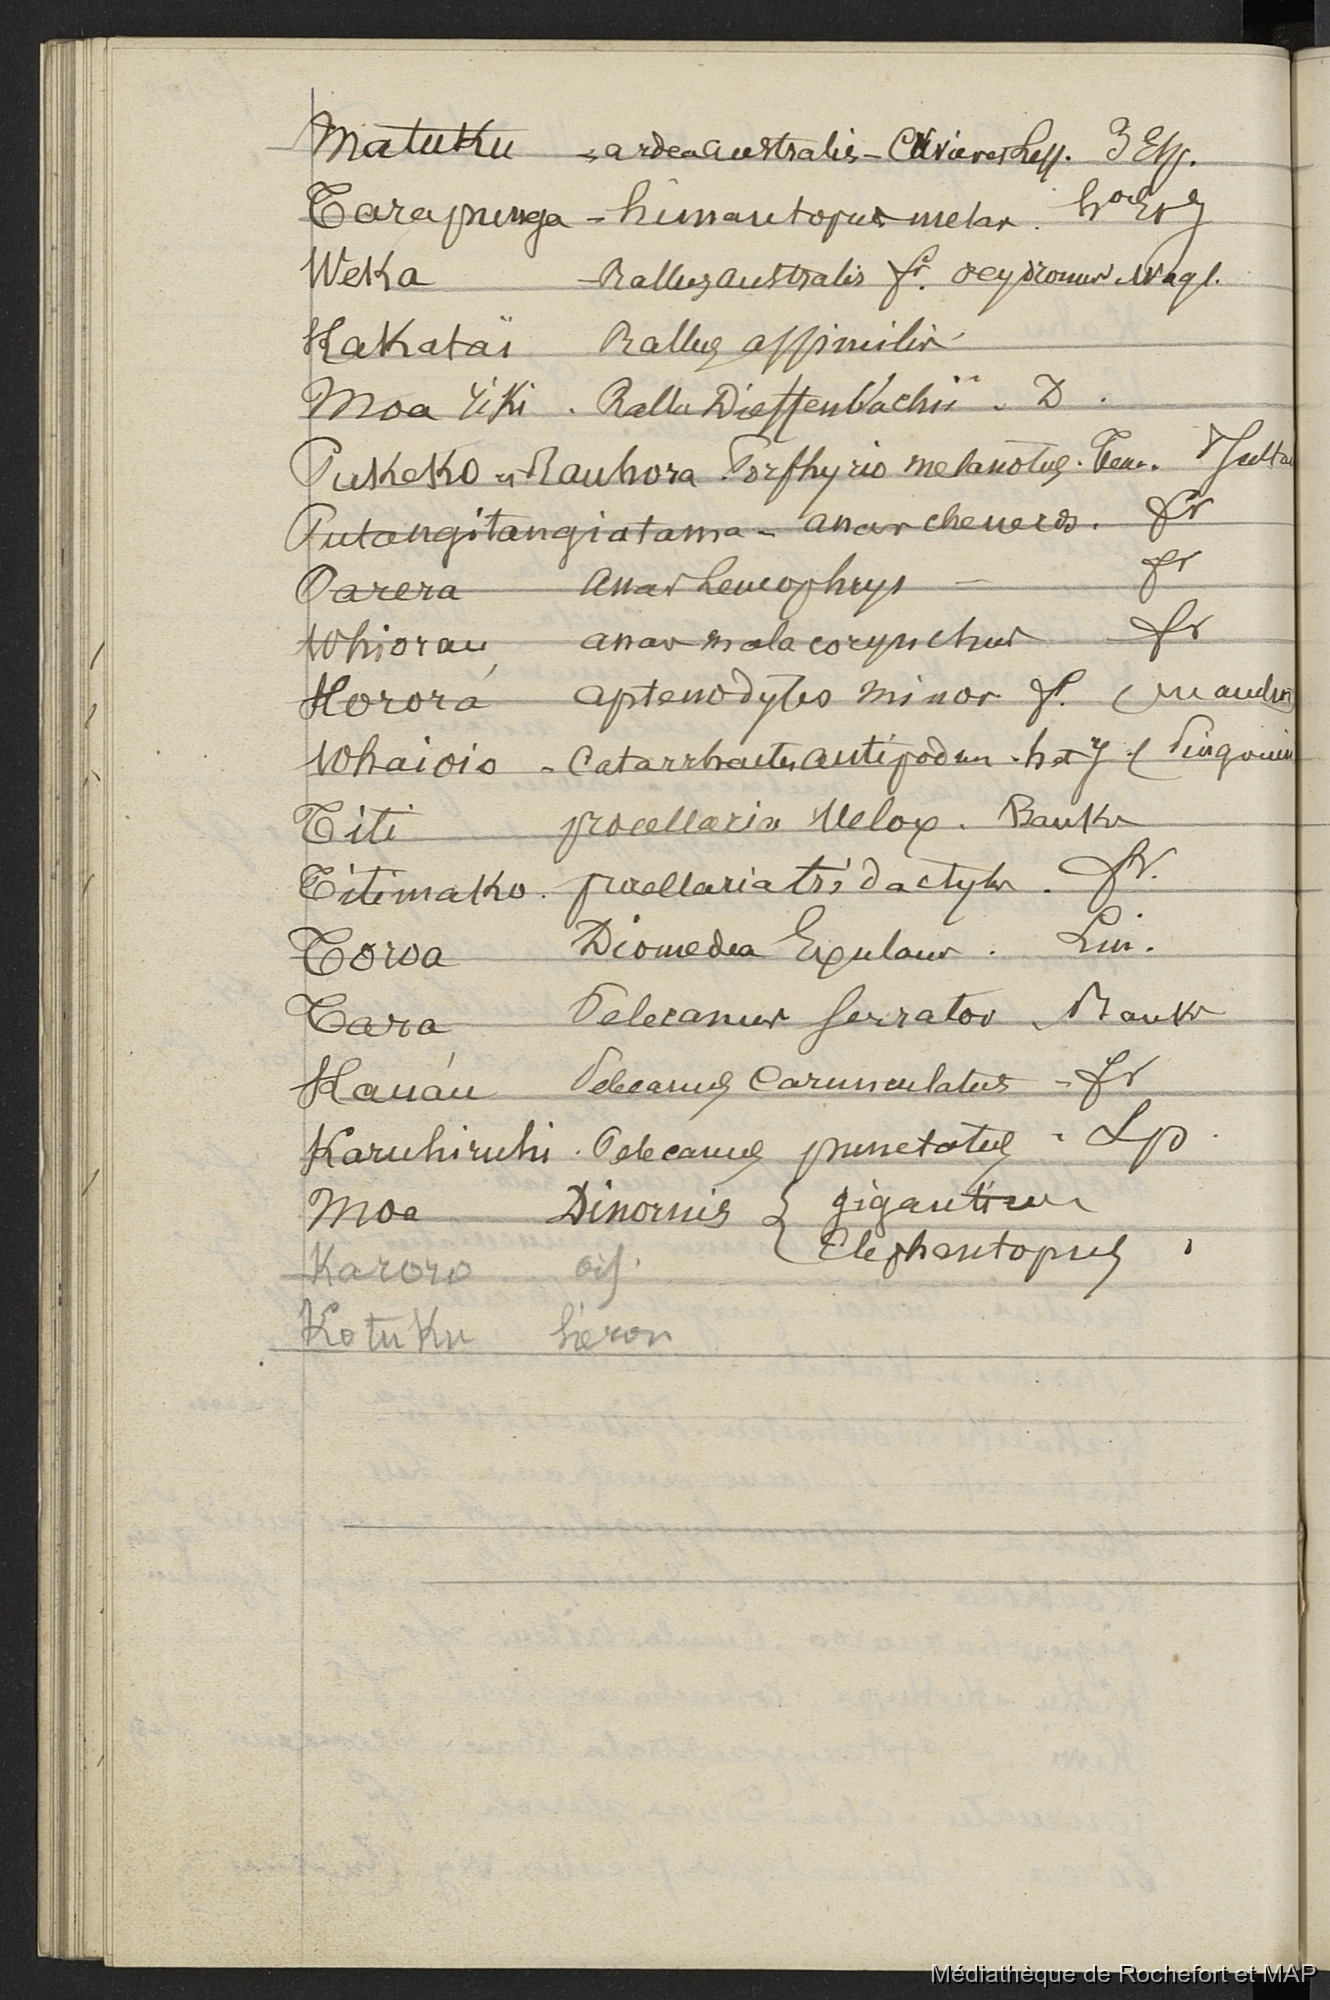 Matuku - ardea australis - Cuvier et Less. 3 Esp.
Tarapunga - himantopus melas.
Weka - Rallus australis fr. ocydromus Wagl.
Kakataï Rallus assimilis
Moa riki. Rallu Dieffenbachii. D.
Pukeko et Rauhora. Porphyrio melanotus. Tem. Sulta
Putangitangiatama - anas cheneros. fr
Parera anas Leucophrys - fr
Whiorau anas malacorynchus fr
Kororá aptenodytes minor f. (manchot
Whaioio - Catarrhactes antipodum. h et J (Pingouin
Titi procellaria Velox. Banks
Titimako. procellaria tridactyla. fr.
Toroa Diomedea Exulans. Lin.
Tara Pelecanus Serrator Banks
Kauáu Pelecanus Carunculatus - fr
Karuhiruhi. Pelecanus punctatus. Sp
Moa Dinornis { giganteus
Elephantopus
Karoro ois.
Kotuku héron
Médiathèque de Rochefort et MAP